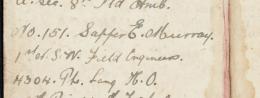 a. Sec. 8th Fld Amb.
No. 151. Sapper E. Murray.
1st N.S.W. Field Engineers.
4304. Pte. Lang H. O.